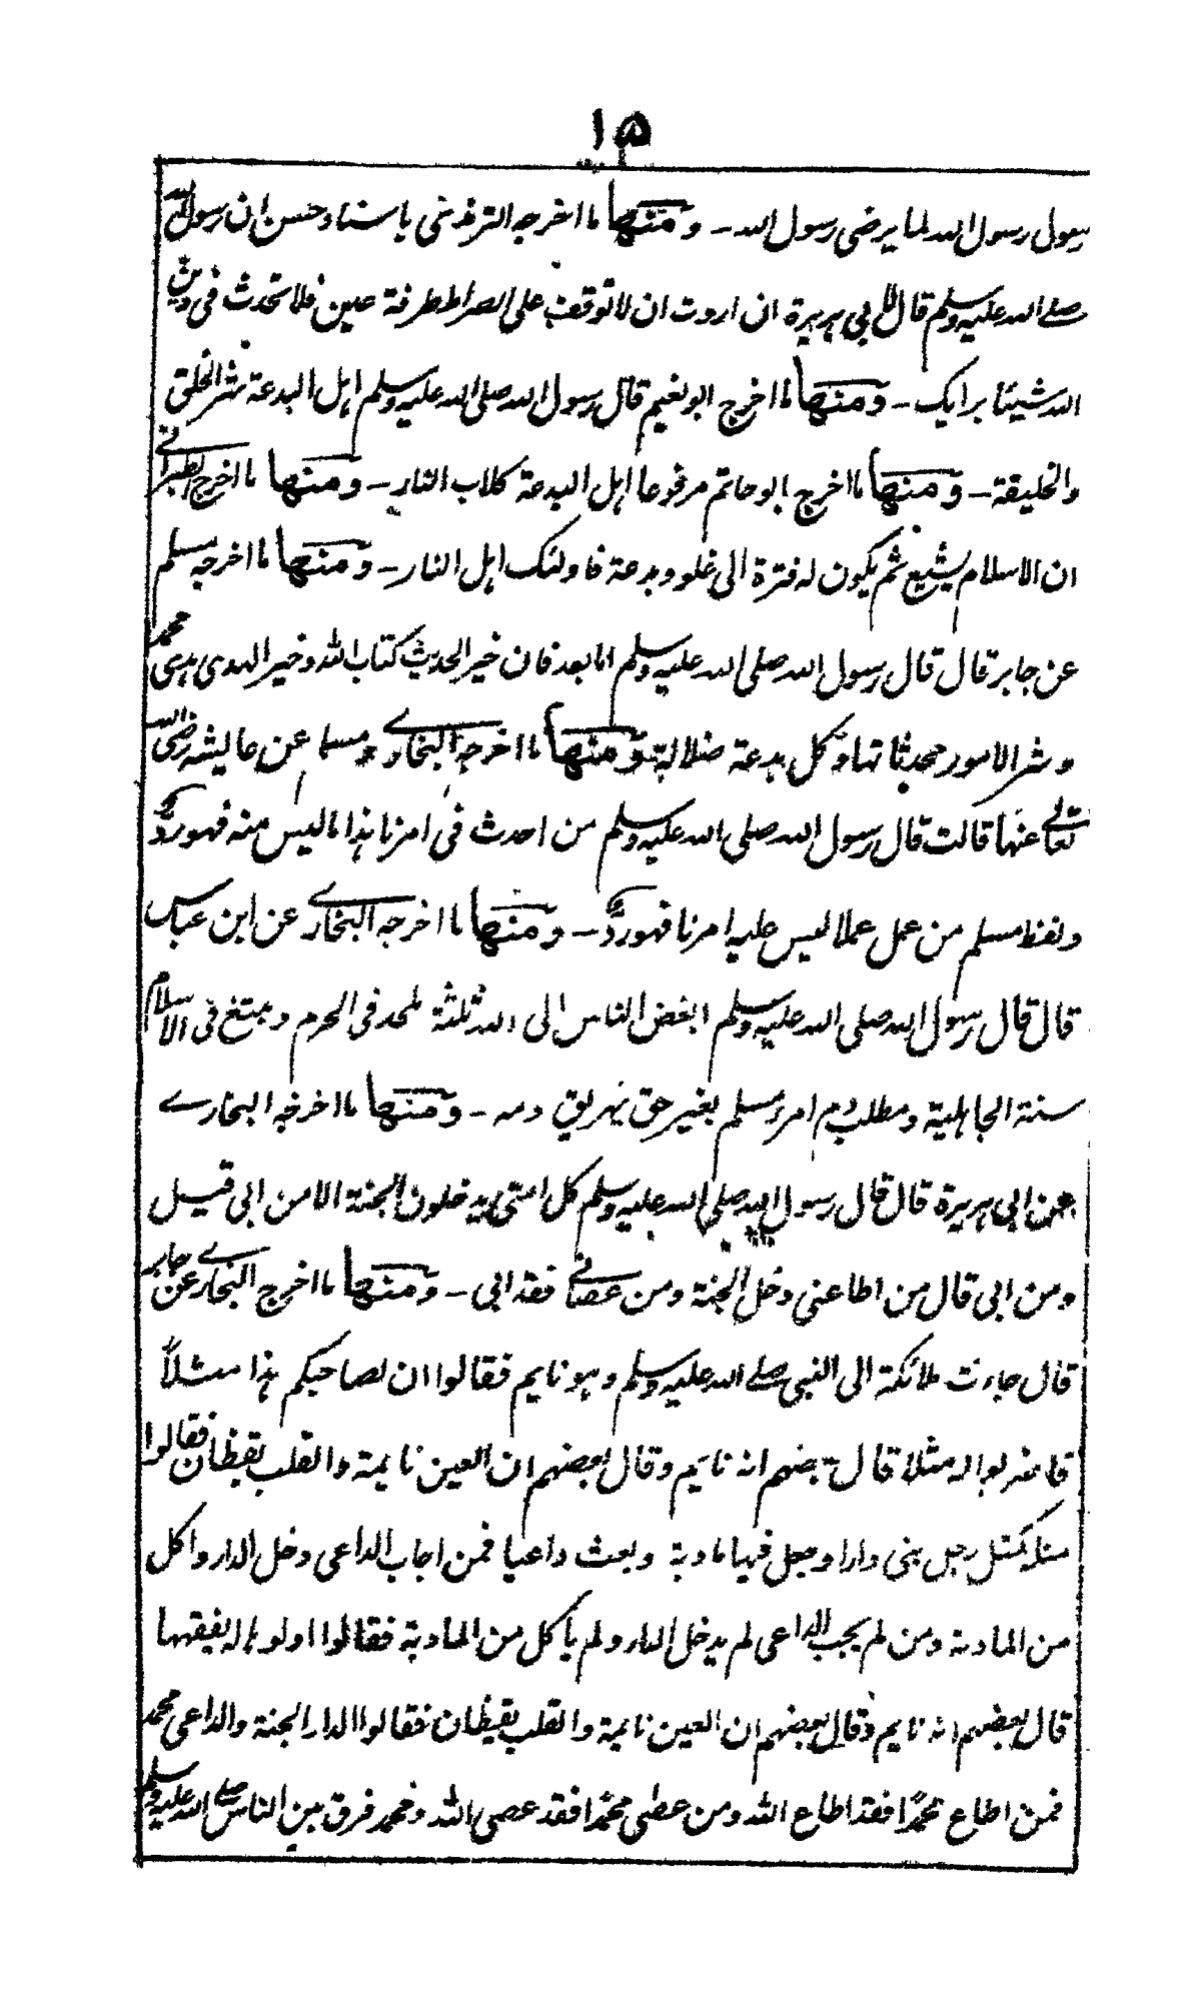 ١٥
رسول رسول الله لما يرضى رسول الله ــ ومنها ما اخرجه الترمذى باسناد حسن ان رسول الله
صلے الله عليه وسلم قال لابى هريرة ان اردت ان لا توقف على الصراط طرفة عين فلا تحدث فى دين
الله شيئا برايك ــ ومنها ما اخرج ابو نعيم قال رسول الله صلى الله عليه وسلم اهل البدعة شر الخلق
والخليقة ــ ومنها ما اخرج ابو حاتم مرفوعا اهل البدعة كلاب النار ــ ومنها ما اخرج الطبرانے
ان الاسلام يشيع ثم يكون له فترة الى غلو وبدعة فاولئك اهل النار ــ ومنها ما اخرجه مسلم
عن جابر قال قال رسول الله صلى الله عليه وسلم اما بعد فان خير الحديث كتاب الله وخير الهدى هدى محمد
وشر الامور محدثاتها وكل بدعة ضلالة ومنها ما اخرجه البخارے ومسلم عن عايشه رضى الله
تعالے عنها قالت قال رسول الله صلى الله عليه وسلم من احدث فى امرنا هذا ما ليس منه فهو ردٌّ
ولفظ مسلم من عمل عملا ليس عليه امرنا فهو ردٌّ ــ ومنها ما اخرجه البخارے عن ابن عباس
قال قال رسول الله صلى الله عليه وسلم ابغض الناس الى الله ثلثة ملحد فى الحرم ومبتغ فى الاسلام
سنة الجاهلية ومطلب دم امرء مسلم بغير حق ليهريق دمه ــ ومنها ما اخرجه البخارے
عن ابى هريرة قال قال رسول الله صلى الله عليه وسلم كل امتى يدخلون الجنة الا من ابى قيل
ومن ابى قال من اطاعنى دخل الجنة ومن عصانے فقد ابى ــ ومنها ما اخرج البخارے عن جابر
قال جاءت ملائكة الى النبى صلے الله عليه وسلم وهو نايم فقالوا ان لصاحبكم هذا مثلاً
فاضربوا له مثلا قال بعضهم انه نايم وقال بعضهم ان العين نايمة والقلب يقظان فقالوا
مثله كمثل رجل بنى دارا وجعل فيها مادبة وبعث داعيا فمن اجاب الداعى دخل الدار واكل
من المادبة ومن لم يجب الداعى لم يدخل الدار ولم ياكل من المادبة فقالوا اولوها له يفقهها
قال بعضهم انه نايم وقال بعضهم ان العين نايمة والقلب يقظان فقالوا الدار الجنة والداعى محمد
فمن اطاع محمدًا فقد اطاع الله ومن عصى محمدًا فقد عصى الله ومحمد فرق بين الناس صلے الله عليه وسلم